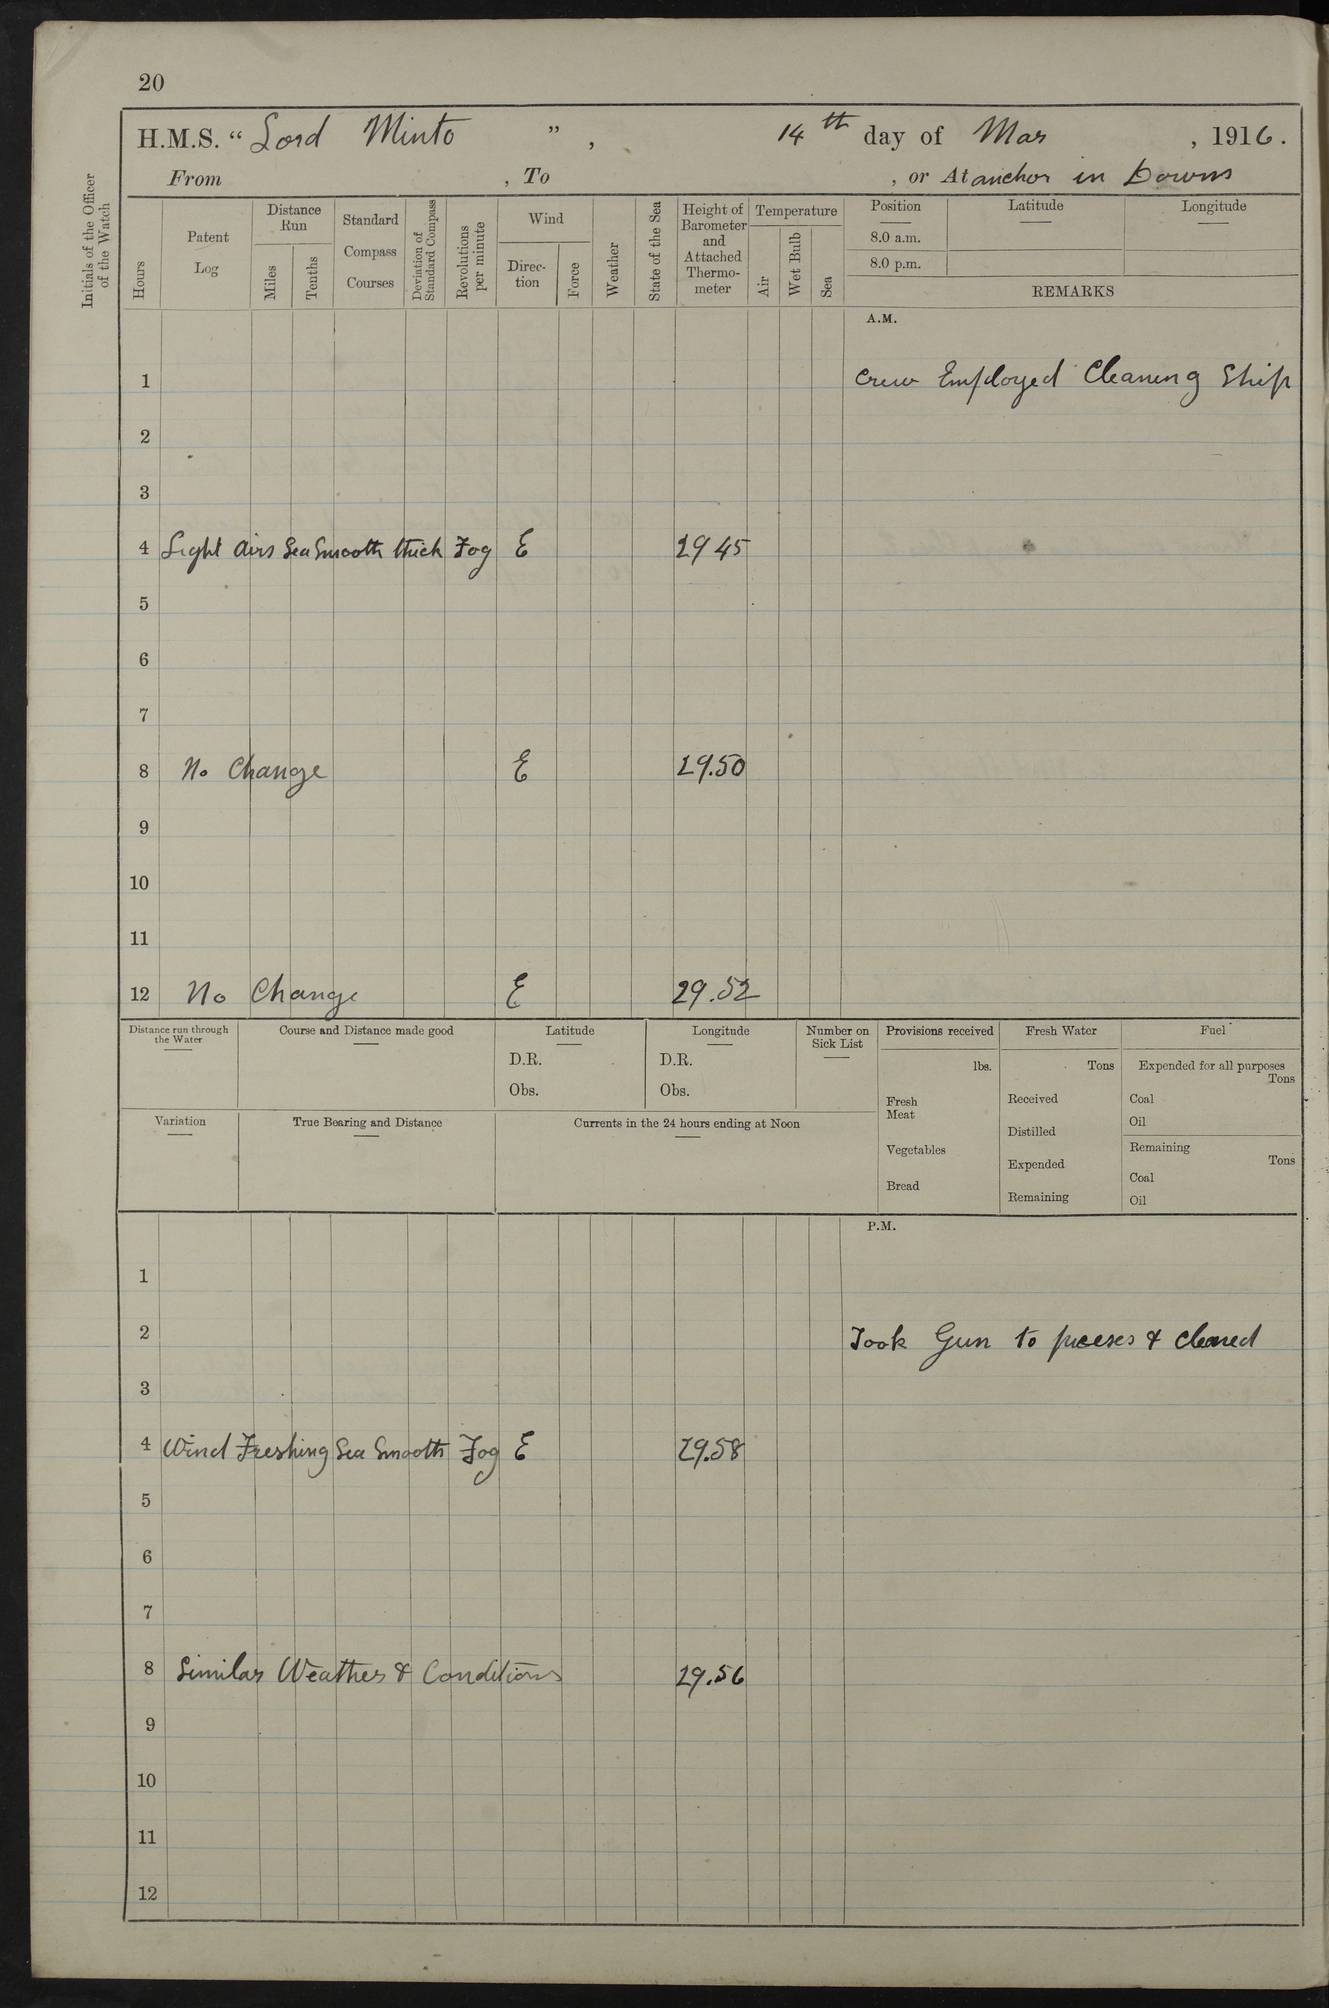 20
H.M.S. “ Lord Minto ”, 14th day of Mar, 1916.
From , To , or At anchor in Downs
Initials of the Officer of the Watch
Hours
Patent Log
Distance Run
Miles
Tenths
Standard Compass Courses
Deviation of Standard Compass
Revolutions per minute
Wind
Direc- tion
Force
Weather
State of the Sea
Height of Barometer and Attached Thermo- meter
Temperature
Air
Wet Bulb
Sea
Position Latitude Longitude
8.0 a.m.
8.0 p.m.
REMARKS
A.M.
1 Crew Employed Cleaning Ship
2
3
4 Light airs Sea Smooth thick Fog E 29 45
5
6
7
8 No Change E 29.50
9
10
11
12 No Change E 29.52
Distance run through the Water
Course and Distance made good
Latitude
D.R.
Obs.
Longitude
D.R.
Obs.
Number on Sick List
Provisions received
lbs.
Fresh Meat
Vegetables
Bread
Fresh Water
Tons
Received
Distilled
Expended
Remaining
Fuel
Expended for all purposes
Tons
Coal
Oil
Remaining
Tons
Coal
Oil
Variation
True Bearing and Distance
Currents in the 24 hours ending at Noon
P.M.
1
2 Took Gun to pieeses & cleaned
3
4 Wind Freshing Sea Smooth Fog E 29.58
5
6
7
8 Similar Weather & Conditions 29.56
9
10
11
12